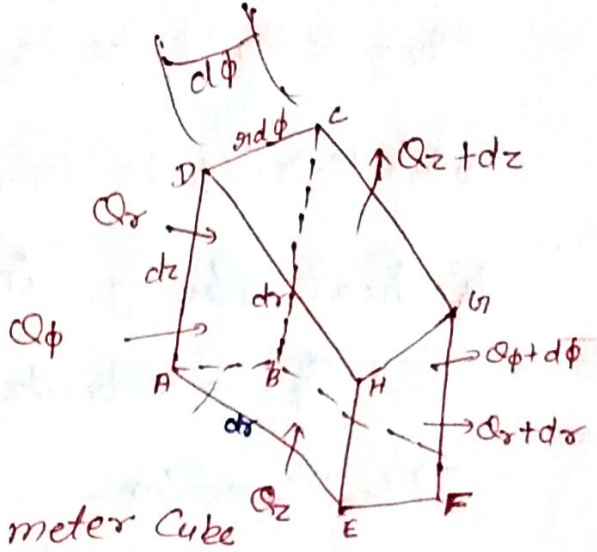 dϕ
rdϕ
C
D
Qz + dz
Qr
dz
dr
G
Qϕ
Qϕ + dϕ
A
B
H
Qr + dr
dr
Qz
E
F
meter Cube